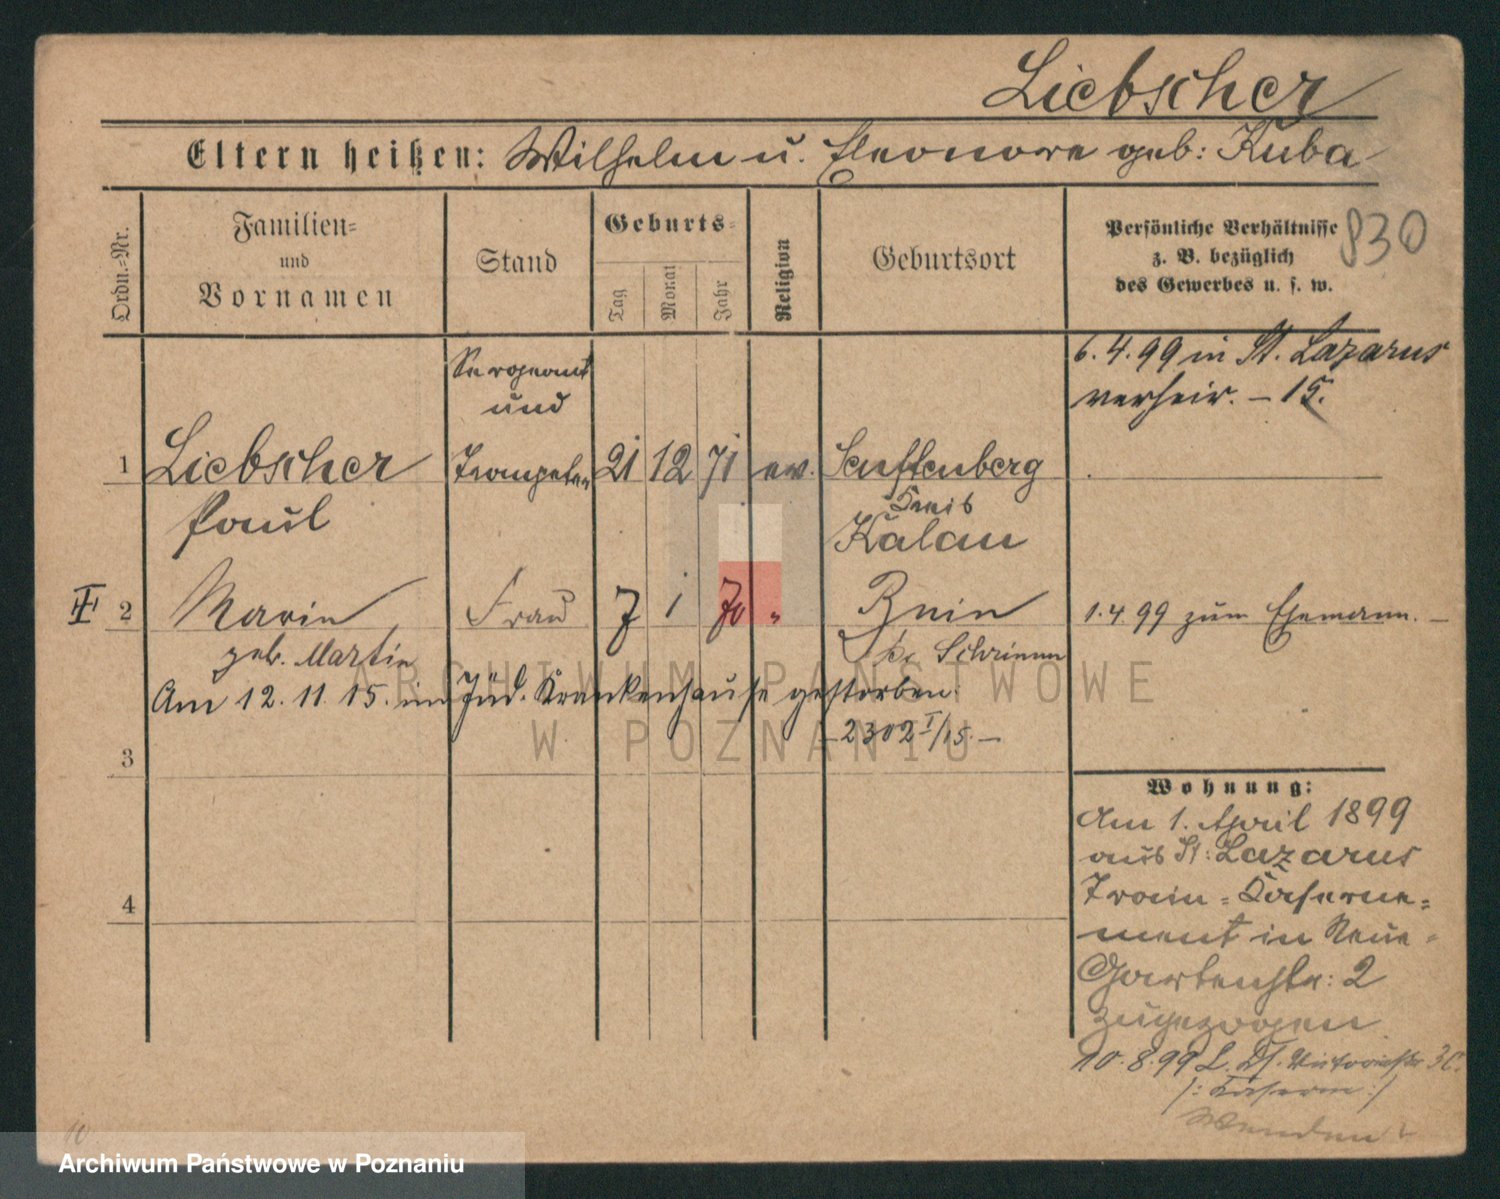 Liebscher
Eltern heißen: Wilhelm u. Eleonore geb: Kuba
Ordn.-Nr.
Familien-
und
Vornamen
Stand
Geburts-
Tag
Monat
Jahr
Religion
Geburtsort
Persönliche Verhältnisse
z. B. bezüglich
des Gewerbes u. s. w.
830
6. 4. 99 in St. Lazarus
verheir. – 15.
Sergeant
und
1 Liebscher Trompeter 21 12 71 ev. Senftenberg
Paul
Kreis
Kalau
II 2 Marie Frau 7 1 70 " Bnin
geb. Martin
Kr. Schrimm
1. 4. 99 zum Ehemann. –
Am 12. 11. 15. im Jüd. Krankenhause gestorben.
– 2302 I/15. –
3
4
Wohnung:
Am 1. April 1899
aus St. Lazarus
Train-Kaserne-
ment in Neue-
Gartenstr: 2
zugezogen
10. 8. 99 L. St. Victoriastr 3c.
/: Kaserne :/
Wenden!
10
ARCHIWUM PAŃSTWOWE
W POZNANIU
Archiwum Państwowe w Poznaniu